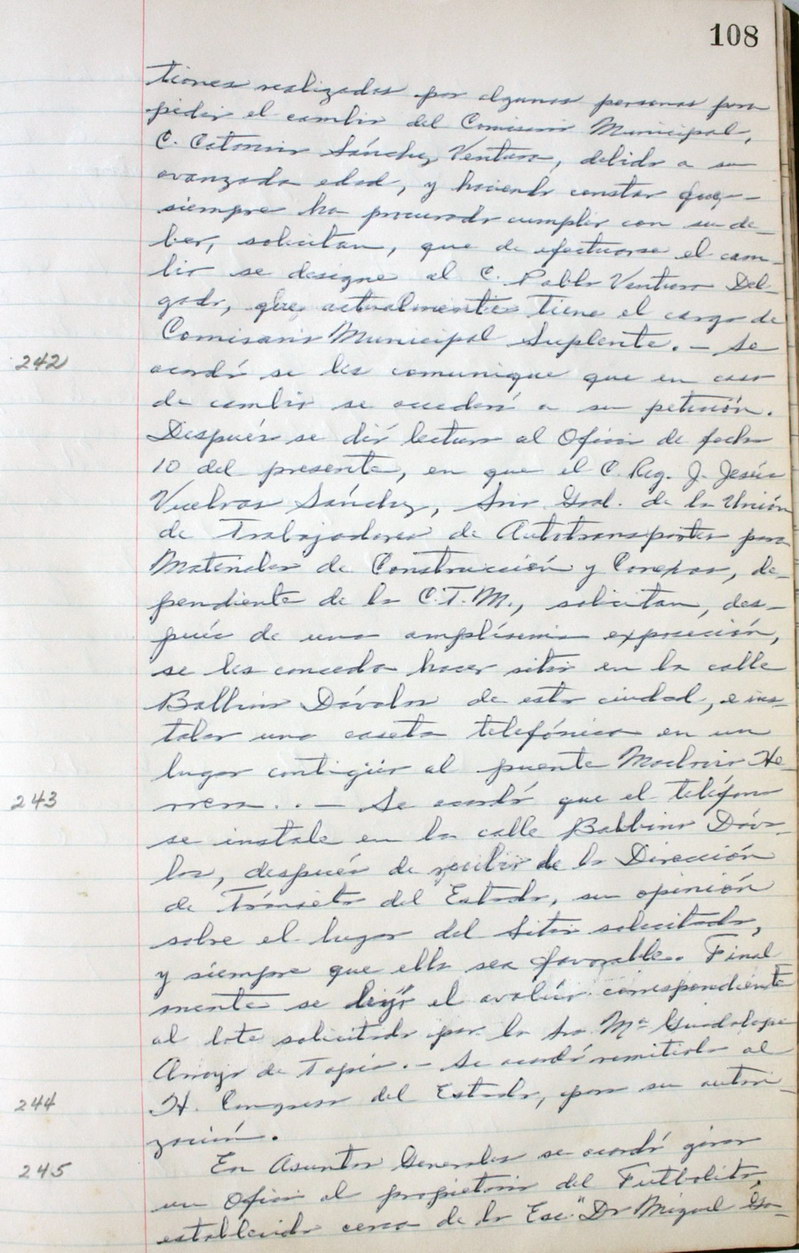 108
tiones realizadas por algunas personas para
pedir el cambio del Comisario Municipal,
C. Sánchez Ventura, debido a su
avanzada edad, y haciendo constar que—
siempre ha procurado cumplir con su de-
ber, solicitan, que de efectuarse el cam-
bio se designe al C. Pablo Ventura Del-
gado, que actualmente tiene el cargo de
Comisario Municipal Suplente. — Se
242 acordó se les comunique que en caso
de cambio se accederá a su petición.
Después se dió lectura al Oficio de fecha
10 del presente, en que el C. Reg. J. Jesús
Vuelvas Sánchez, Srio Gral. de la Unión
de Trabajadores de Autotransportes para
Materiales de Construcción y Conexos, de-
pendiente de la C.T.M., solicitan, des-
pués de una amplísima exposición,
se les conceda hacer sitio en la calle
Balbino Dávalos de esta ciudad, e ins-
talar una caseta telefónica en un
lugar contiguo al puente Maclovio He-
243 rrera.. — Se acordó que el teléfono
se instale en la calle Balbino Dáva-
los, después de recibir de la Dirección
de Tránsito del Estado, su opinión
sobre el lugar del Sitio solicitado,
y siempre que ella sea favorable. Final
mente se leyó el avalúo correspondiente
al lote solicitado por la Sra Mª Guadalupe
Arroyo de Tapia. — Se acordó remitirlo al
244 H. Congreso del Estado, para su autori-
zación.
245 En Asuntos Generales se acordó girar
un Oficio al propietario del Futbolito,
establecido cerca de la Esc. "Dr Miguel Ga-